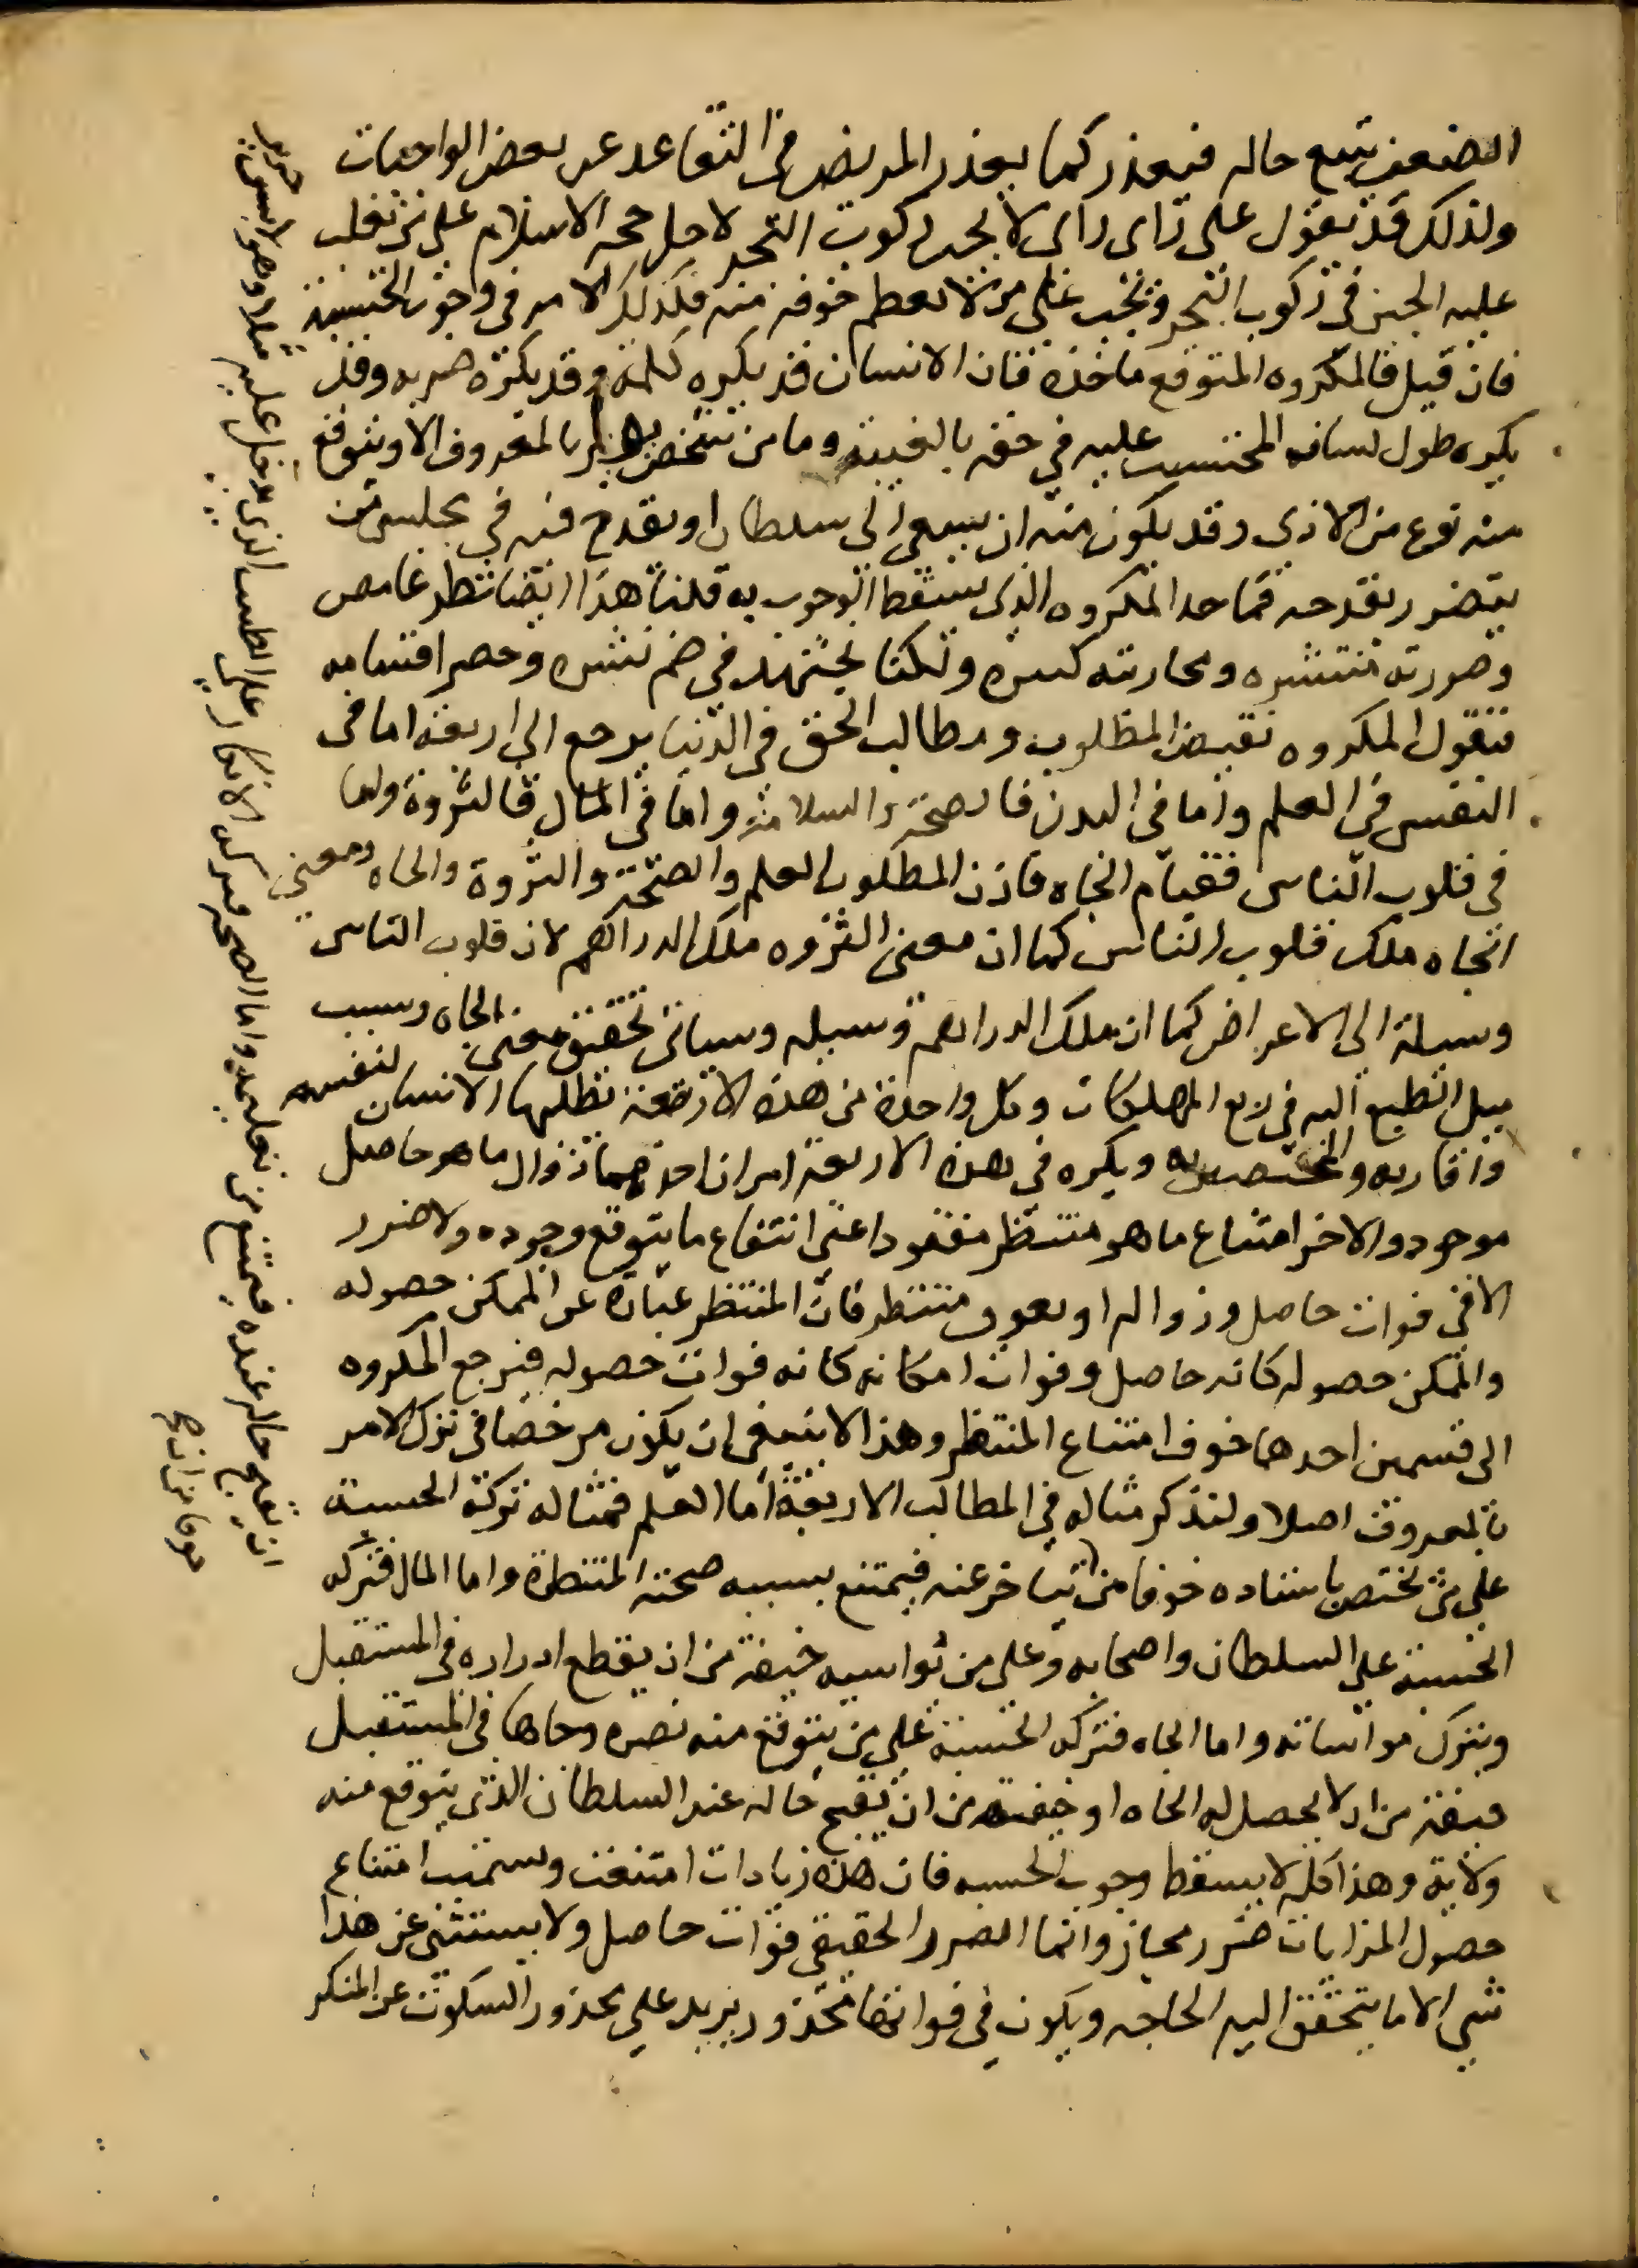 الضعف يتبع حاله فيعذر كما يعذر المريض في التقاعد عن بعض الواجبات
ولذلك قد نقول على رأي رأى لا يجب ركوب البحر لاجل حجة الاسلام على من تغلب
عليه الجبن في ركوب البحر ويجب على من لا يعظم خوفه منه فكذلك الامر في وجوب الحسبة
فان قيل فالمكروه المتوقع ما حده فان الانسان قد يكره كلمة وقد يكره ضربه وقد
يكره طول لسان المحتسب عليه في حقه بالغيبة وما من شخص يومر بالمعروف الا ويتوقع
منه نوع من الاذى وقد يكون منه ان يسعى الى سلطان او يقدح فيه في مجلس من
يتضرر بقدحه فما حد المكروه الذي يسقط الوجوب به قلنا هذا ايضا نظر غامض
وصورته منتشره ومجاريه كثيره ولكنا نجتهد في ضم نشره وحصر اقسامه
فنقول المكروه نقيض المطلوب ومطالب الخلق في الدنيا يرجع الى اربعة اما في
النفس في العلم واما في البدن فالصحة والسلامة واما في المال فالثروة واما
في قلوب الناس فقيام الجاه فاذن المطلوب العلم والصحة والثروة والجاه ومعنى
الجاه ملك قلوب الناس كما ان معنى الثروه ملك الدراهم لان قلوب الناس
وسيلة الى الاعراض كما ان ملك الدراهم وسيله وسياتي تحقيق معنى الجاه وسبب
ميل الطبع اليه في ربع المهلكات وكل واحدة من هذه الاربعة يطلبها الانسان لنفسه
واقاربه والمختصين به ويكره في هذه الاربعة امران احدهما زوال ما هو حاصل
موجود والاخر امتناع ما هو منتظر مفقود اعني انتفاع ما يتوقع وجوده ولا ضرر
الا في فوات حاصل وزواله او تعويق منتظر فان المنتظر عبارة عن الممكن حصوله
والممكن حصوله كانه حاصل وفوات امكانه كانه فوات حصوله فيرجع المكروه
الى قسمين احدهما خوف امتناع المنتظر وهذا لا ينبغي ان يكون مرخصا في ترك الامر
بالمعروف اصلا ولنذكر مثاله في المطالب الاربعة اما العلم فمثاله تركه الحسبة
على من يختص باستاده خوفا من ان يتاخر عنه فيمتنع بسببه صحته المنتظرة واما المال فتركه
الحسبة على السلطان واصحابه وعلى من يواسيه خيفة من ان يقطع ادراره في المستقبل
ويترك مواساته واما الجاه فتركه الحسبة على من يتوقع منه نصره وجاها في المستقبل
خيفة من ان لا يحصل له الجاه او خيفة من ان يقبح حاله عند السلطان الذي يتوقع منه
ولاية وهذا كله لا يسقط وجوب الحسبه فان هذه زيادات امتنعت وتسمية امتناع
حصول الزيادات ضرر مجاز وانما الضرر الحقيقي فوات حاصل ولا يستثنى عن هذا
شي الا ما يتحقق اليه الحاجه ويكون في فواتها محذور يزيد على محذور السكوت عن المنكر
ان يقبح حاله عنده فيمتنع من تعليمه واما الصحه فتركه الانكار على الطبيب الذي يدخل عليه مثلا وهو لابس حرير
خوفا من ان